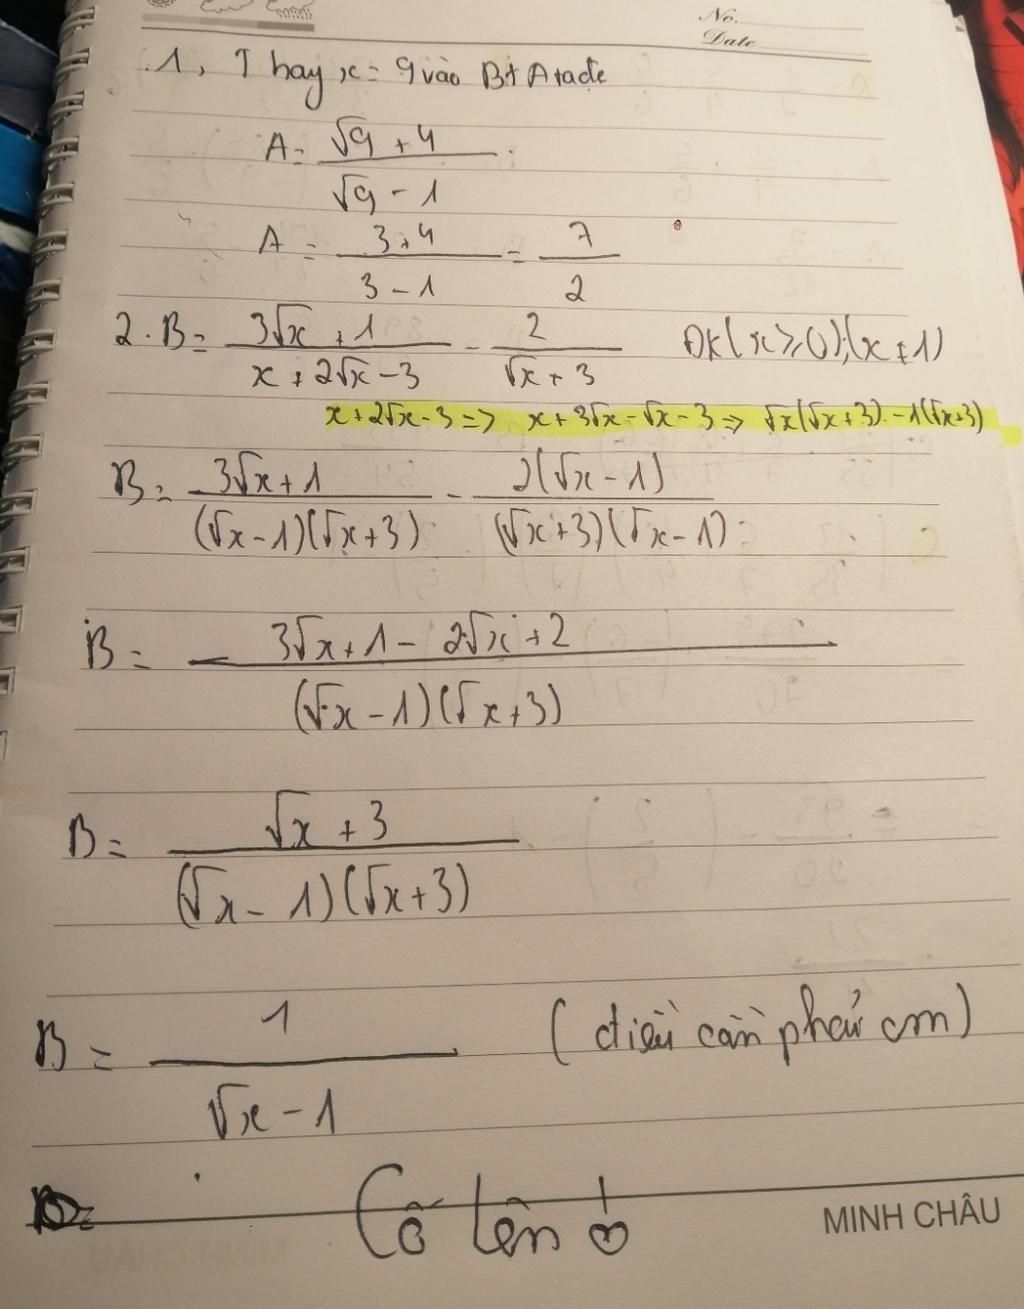 No.
Date
1, Thay x = 9 vào Bt A ta đc
A = √9 + 4 / √9 - 1
A = 3+4 / 3-1 = 7 / 2
2. B = 3√x + 1 / x + 2√x - 3 - 2 / √x + 3 ĐK(x ≥ 0);(x ≠ 1)
x + 2√x - 3 => x + 3√x - √x - 3 => √x(√x + 3) - 1(√x+3)
B = 3√x + 1 / (√x - 1)(√x + 3) - 2(√x - 1) / (√x + 3)(√x - 1)
B = 3√x + 1 - 2√x + 2 / (√x - 1)(√x + 3)
B = √x + 3 / (√x - 1)(√x + 3)
B = 1 / √x - 1 (điều cần phải cm)
Cố lên
MINH CHÂU